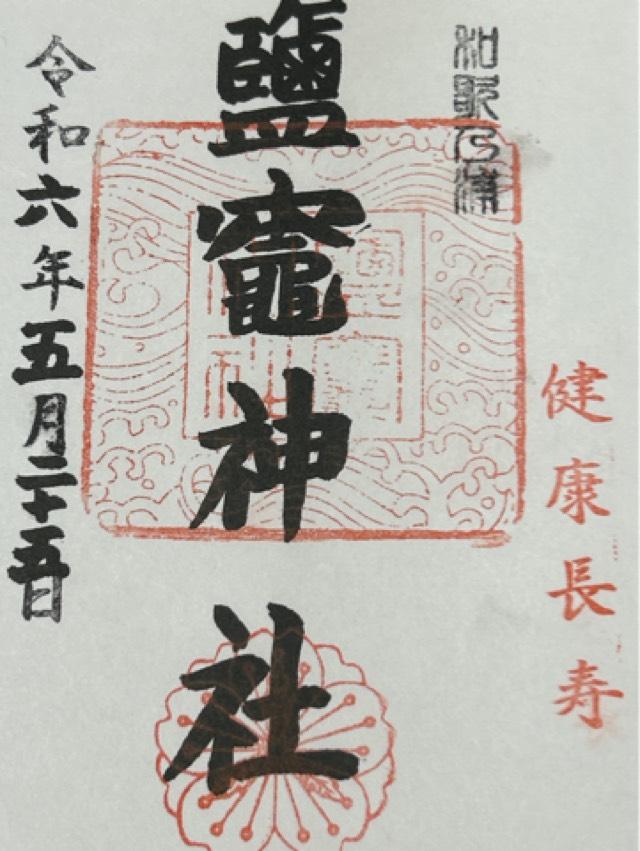 健康長寿
和歌乃浦
鹽竈神社
令和六年五月二十五日